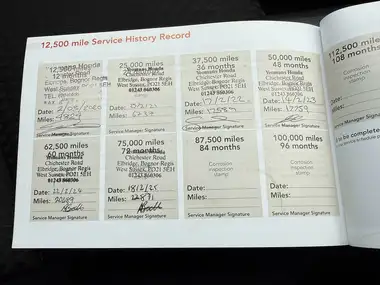 12,500 mile Service History Record
12,500 miles
12 months
Honda
Elbridge, Bognor Regis
West Sussex
TEL:
Date:
Miles:
Service Manager Signature
25,000 miles
Yeomans Honda
Chichester Road
Elbridge, Bognor Regis
West Sussex PO21 5EH
01243 860306
Date:
Miles:
Service Manager Signature
37,500 miles
36 months
Yeomans Honda
Chichester Road
Elbridge, Bognor Regis
West Sussex PO21 5EH
01243 860306
Date: 17/2/22
Miles:
Service Manager Signature
50,000 miles
48 months
Yeomans Honda
Chichester Road
Elbridge, Bognor Regis
West Sussex PO21 5EH
01243 860306
Date: 14/2/23
Miles: 17759
Service Manager Signature
62,500 miles
60 months
Chichester Road
Elbridge, Bognor Regis
West Sussex PO21 5EH
01243 860306
Date: 22/2/24
Miles:
Service Manager Signature
75,000 miles
72 months
Chichester Road
Elbridge, Bognor Regis
West Sussex PO21 5EH
01243 860306
Date: 18/2/25
Miles: 22871
Service Manager Signature
87,500 miles
84 months
Corrosion
inspection
stamp
Date:
Miles:
Service Manager Signature
100,000 miles
96 months
Corrosion
inspection
stamp
Date:
Miles:
Service Manager Signature
112,500 m
108 months
Corrosion
inspection
stamp
Date:
Miles:
Service Manager Signature
to be complete